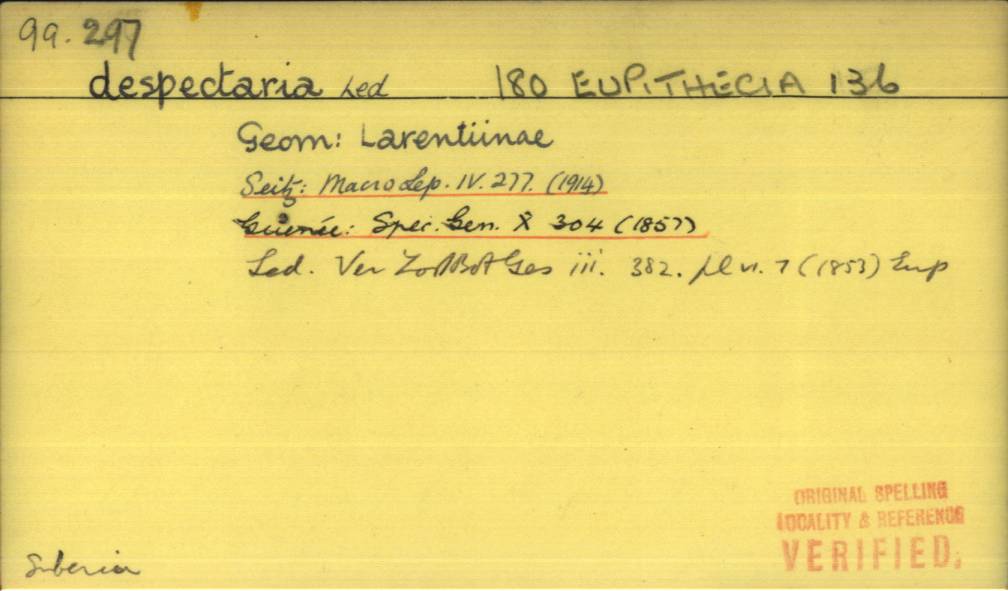 99. 297
despectaria Led 180 EUPITHECIA 136
Geom: Larentiinae
Seitz: Macro Lep. IV. 277. (1914)
Guenée: Spec. Gen. X 304 (1857)
Led. Ver Zool Bot Ges iii. 382. pl vi. 7 (1853) Eup
Siberia
ORIGINAL SPELLING
LOCALITY & REFERENCE
VERIFIED.